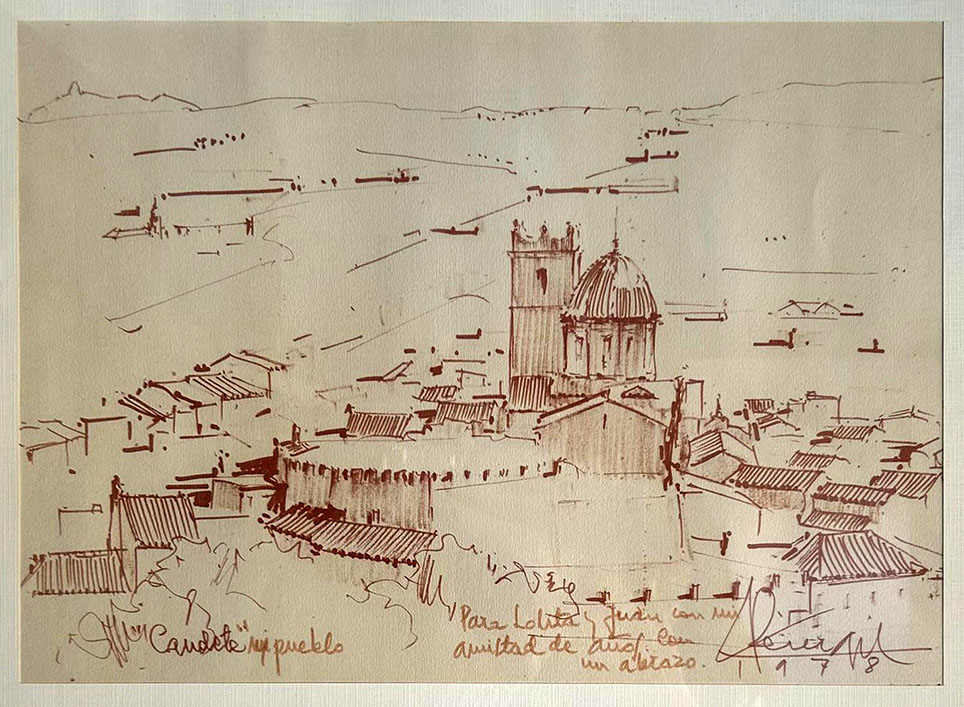 "Caudete" mi pueblo
Para Lolita y Juan con mi
amistad de años. Con
un abrazo.
1978